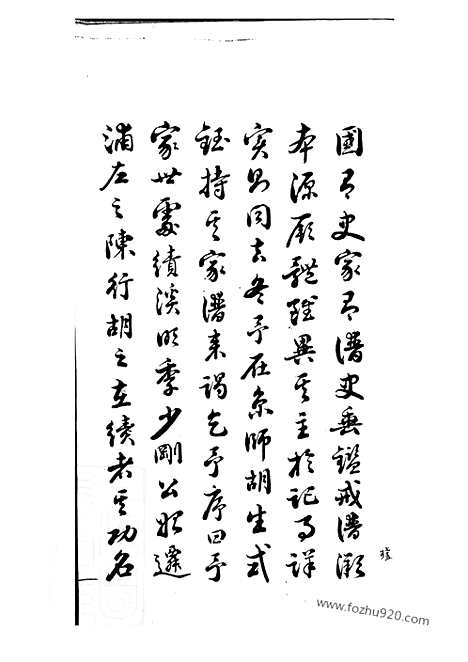 國有史家有譜史垂鑑戒譜溯
本源厥體雖異其主於記事詳
實則同去冬予在京師胡生式
鈺持其家譜来謁乞予序曰予
家世處績溪明季少剛公始遷
浦左之陳行胡之在績者其功名
www.fozhu920.com